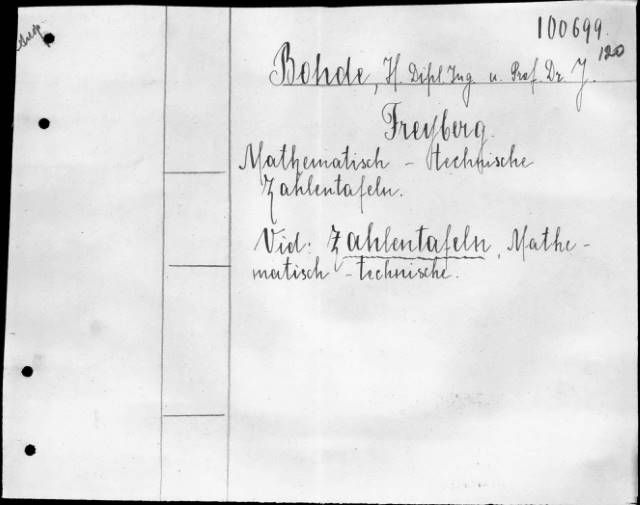 100699.
120
Bohde, H. Dipl Ing. u. Prof. Dr. J.
Freyberg.
Mathematisch - technische
Zahlentafeln.
Vid: Zahlentafeln, Mathe-
matisch - technische.